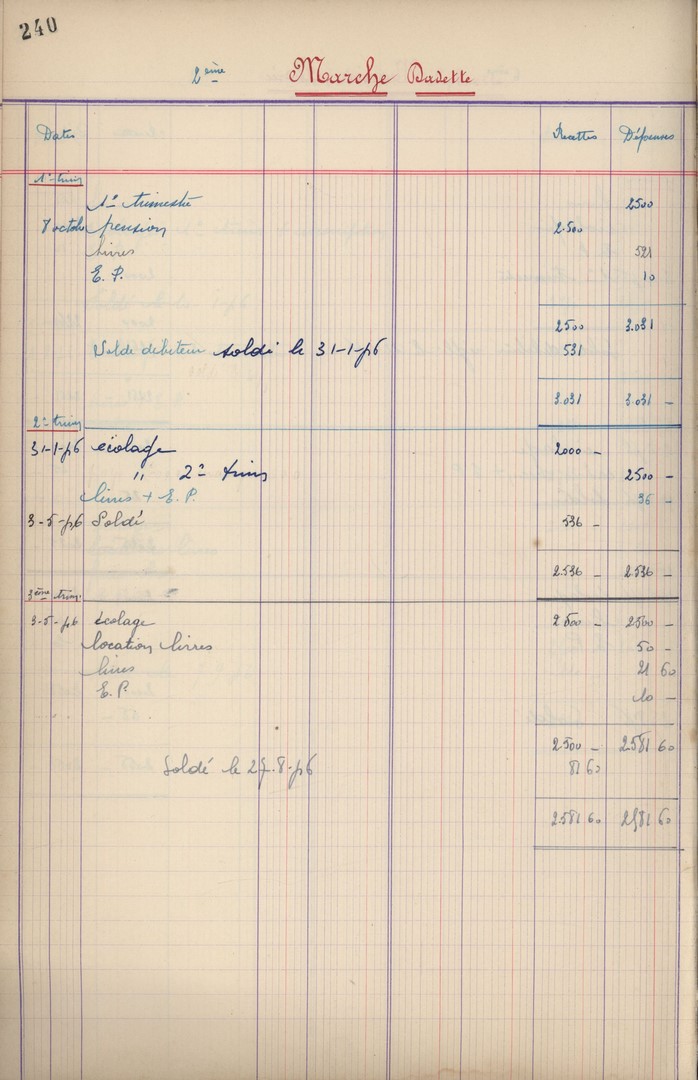 240
2ème Marche Dadette
Dates Recettes Dépenses
1er trim
1er trimestre 2500
7 octobre pension 2.500
livres 521
E. P. 10
2500 3.031
Solde débiteur soldé le 31-1-46 531
3.031 3.031 -
2e trim
31-1-46 écolage 2000 -
" 2e trim 2500 -
livres + E. P. 36 -
3-5-46 Soldé 536 -
2.536 - 2.536 -
3ème trim.
3-5-46 écolage 2500 - 2500 -
location livres 50 -
livres 21 60
E. P. 10 -
2.500 - 2581 60
Soldé le 27.8.46 81 60
2.581 60 2581 60